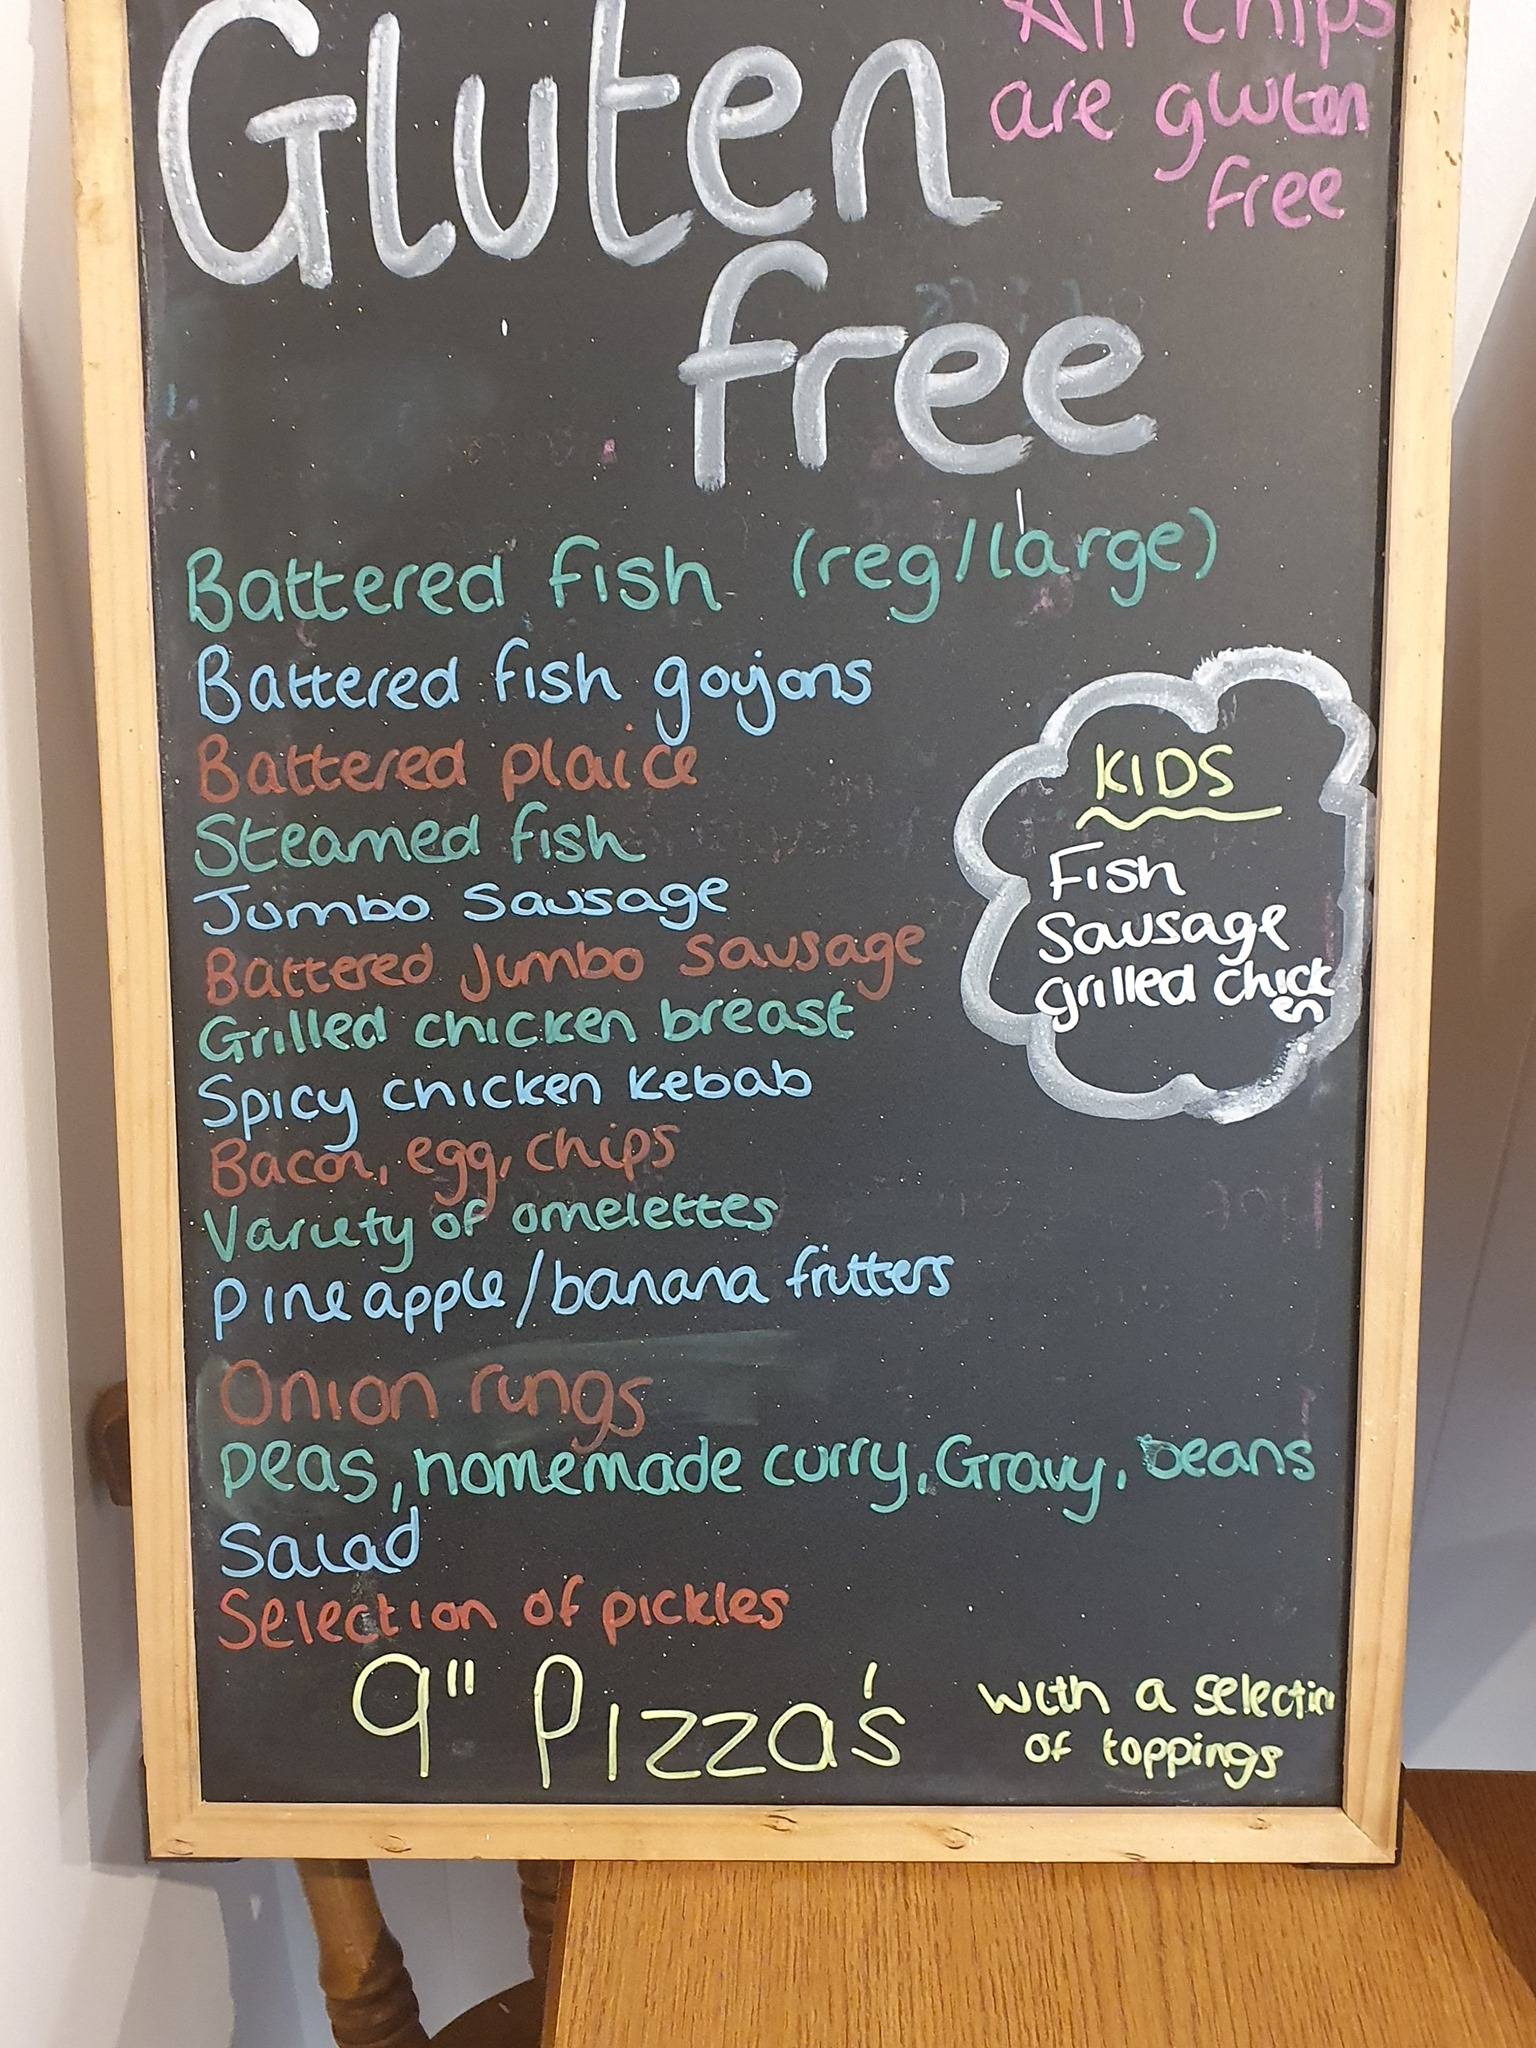 Gluten
free
All chips
are gluten
free
Battered fish (reg/large)
Battered fish goujons
Battered plaice
Steamed fish
Jumbo Sausage
Battered Jumbo Sausage
Grilled chicken breast
Spicy chicken kebab
Bacon, egg, chips
Variety of omelettes
Pineapple/banana fritters
Onion rings
Peas, homemade curry, Gravy, beans
Salad
Selection of pickles
9" Pizza's
with a selection
of toppings
KIDS
Fish
Sausage
grilled chick
en